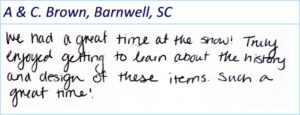 A & C. Brown, Barnwell, SC
We had a great time at the show! Truly
enjoyed getting to learn about the history
and design of these items. Such a
great time!